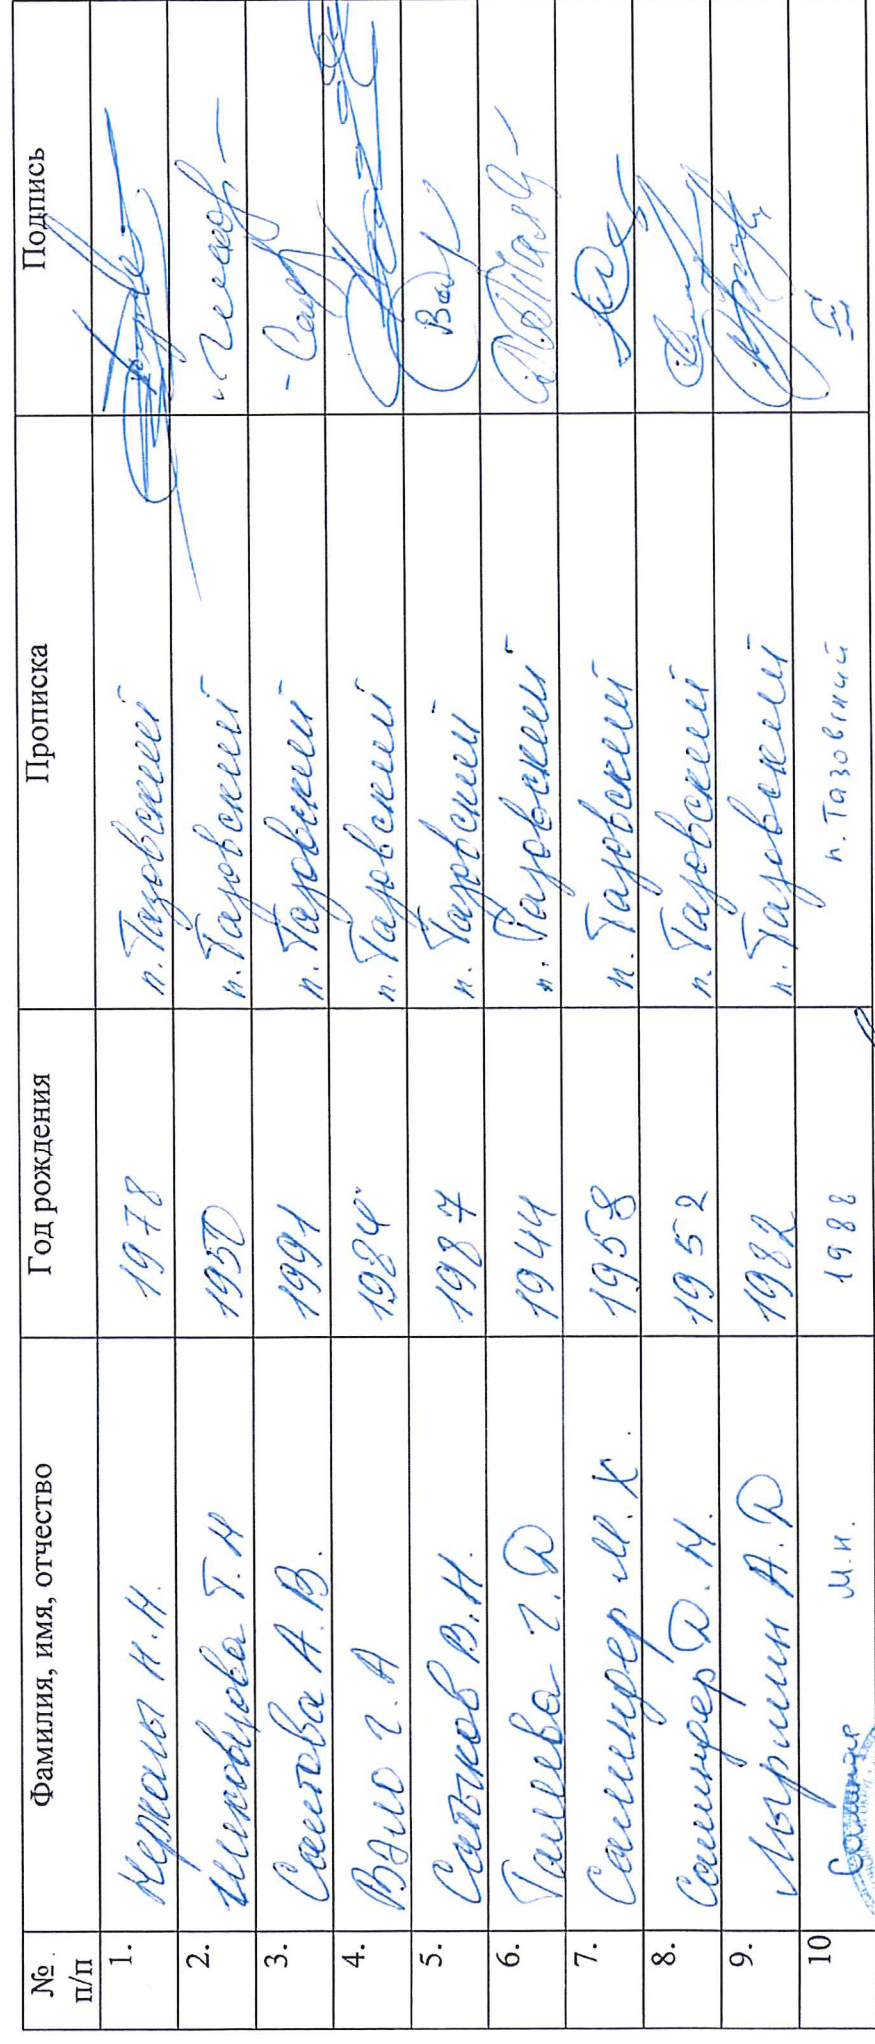 № п/п Фамилия, имя, отчество Год рождения Прописка Подпись
1. 1978 п. Тазовский
2. Т.Н 1950 п. Тазовский
3. Саитова А.В. 1991 п. Тазовский
4. Вэло Г.А 1984 п. Тазовский
5. Сатыков В.Н. 1987 п. Тазовский Вэл
6. Г.Д 1944 п. Тазовский
7. Салиндер М.К. 1958 п. Тазовский
8. Салиндер Д.Н. 1952 п. Тазовский
9. А.Д 1982 п. Тазовский
10 Салиндер М.И. 1988 п. Тазовский